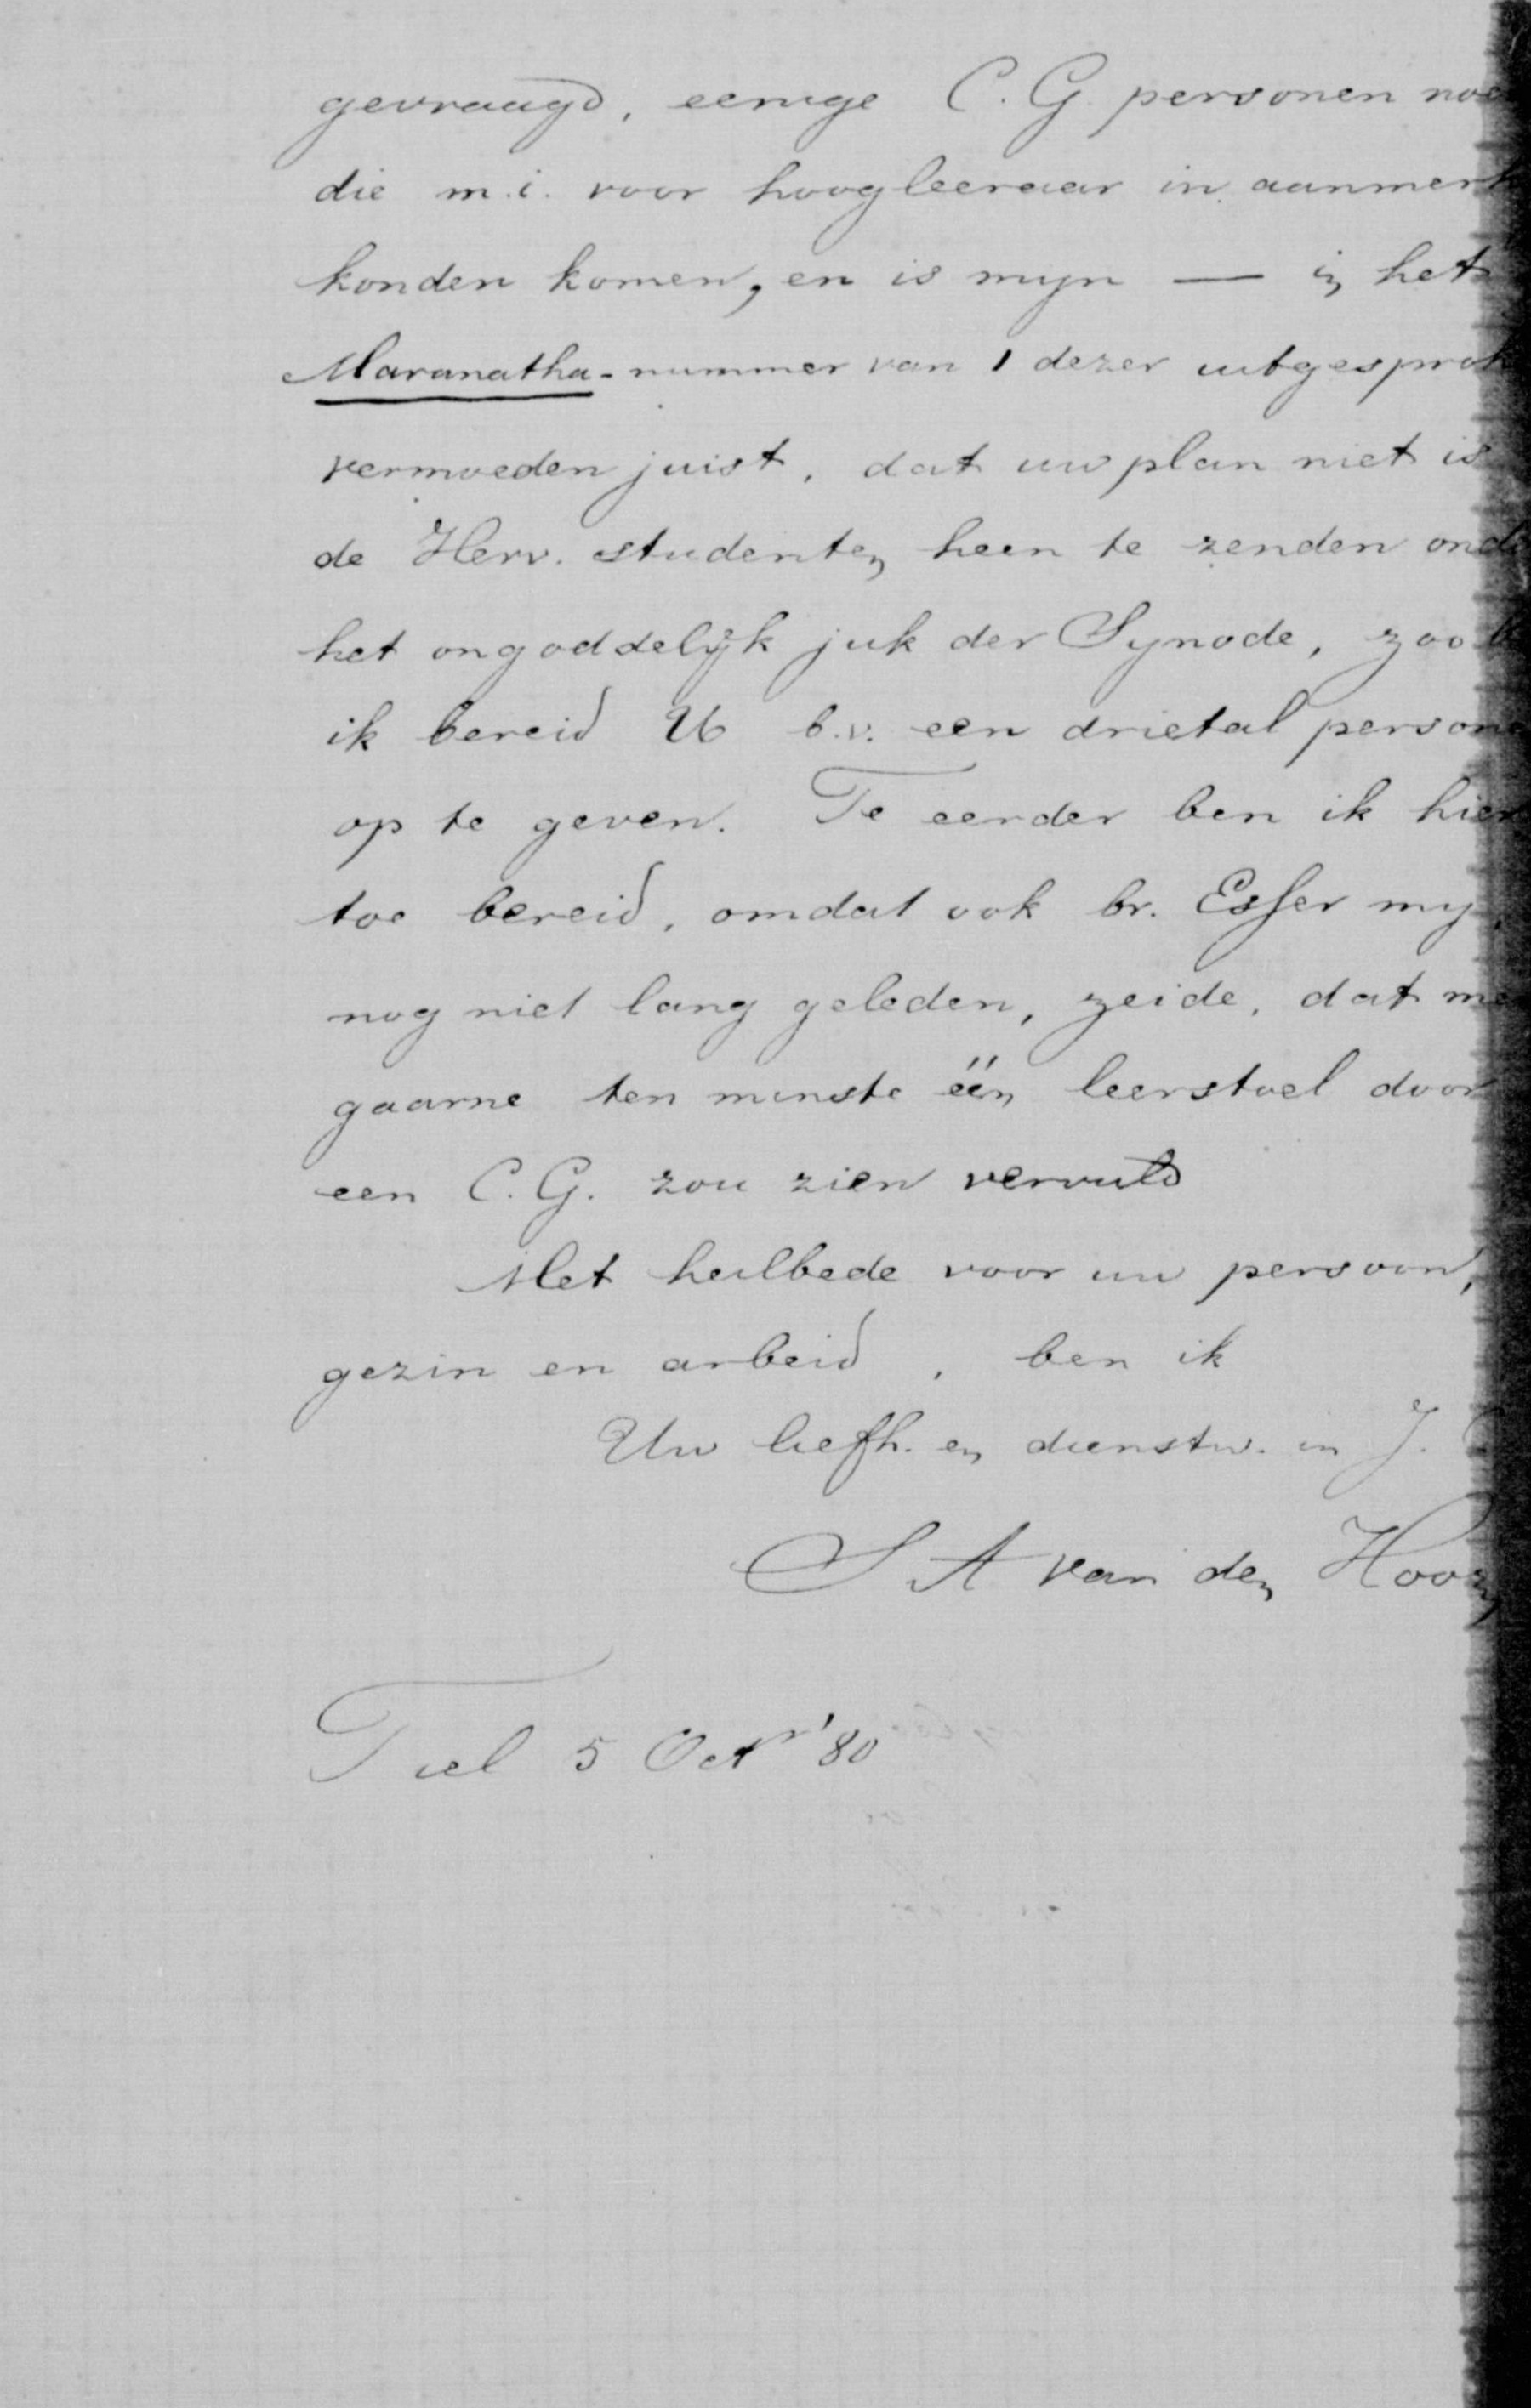 gevraagd, eenige C. G. personen noe
die m.i. voor hoogleeraar in aanmerk
konden komen, en is mijn — in het
Maranatha-nummer van 1 dezer uitgesprok
vermoeden juist, dat uw plan niet is
de Herv. studenten heen te zenden onde
het ongoddelijk juk der Synode, zoo b
ik bereid U b.v. een drietal persone
op te geven. Te eerder ben ik hier
toe bereid, omdat ook br. Esser mij,
nog niet lang geleden, zeide, dat me
gaarne ten minste één leerstoel door
een C. G. zou zien vervuld
Met heilbede voor uw persoon,
gezin en arbeid, ben ik
Uw liefh. en dienstw. in J.
S A van den Hoor
Tiel 5 Octr '80